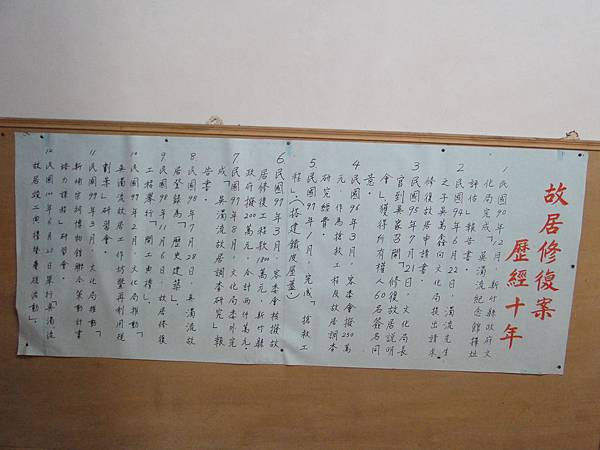 故居修復案
歷經十年
1.民國90年12月,新竹縣政府文
化局完成「吳濁流紀念館擇址
評估」報告書。
2.民國94年6月22日,濁流先生
之子吳萬鑫向文化局提出請求
修復故居申請書。
3.民國95年7月21日,文化局長
官到吳家召開「修復故居說明
會」,獲得所有權人60名簽名同
意。
4.民國96年3月,客委會撥250萬
元,作為搶救工程及故居調查
研究經費。
5.民國97年1月,完成「搶救工
程」(搭建鐵皮屋蓋)。
6.民國97年3月,客委會核撥故
居修復工程款1800萬元,新竹縣
政府撥200萬元,合計兩仟萬元。
7.民國97年8月,文化局委外完
成「吳濁流故居調查研究」報
告書。
8.民國98年7月28日,吳濁流故
居登錄為「歷史建築」。
9.民國98年11月6日,故居修復
工程舉行「開工典禮」。
10.民國99年2月,文化局推動「
吳濁流故居工作坊暨再利用規
劃案」研習會。
11.民國99年3月,文化局推動「
新埔宗祠博物館聯合策動計畫
培力課程」研習會。
12.民國100年6月27日舉行吳濁流
故居竣工典禮暨慶復活動」。